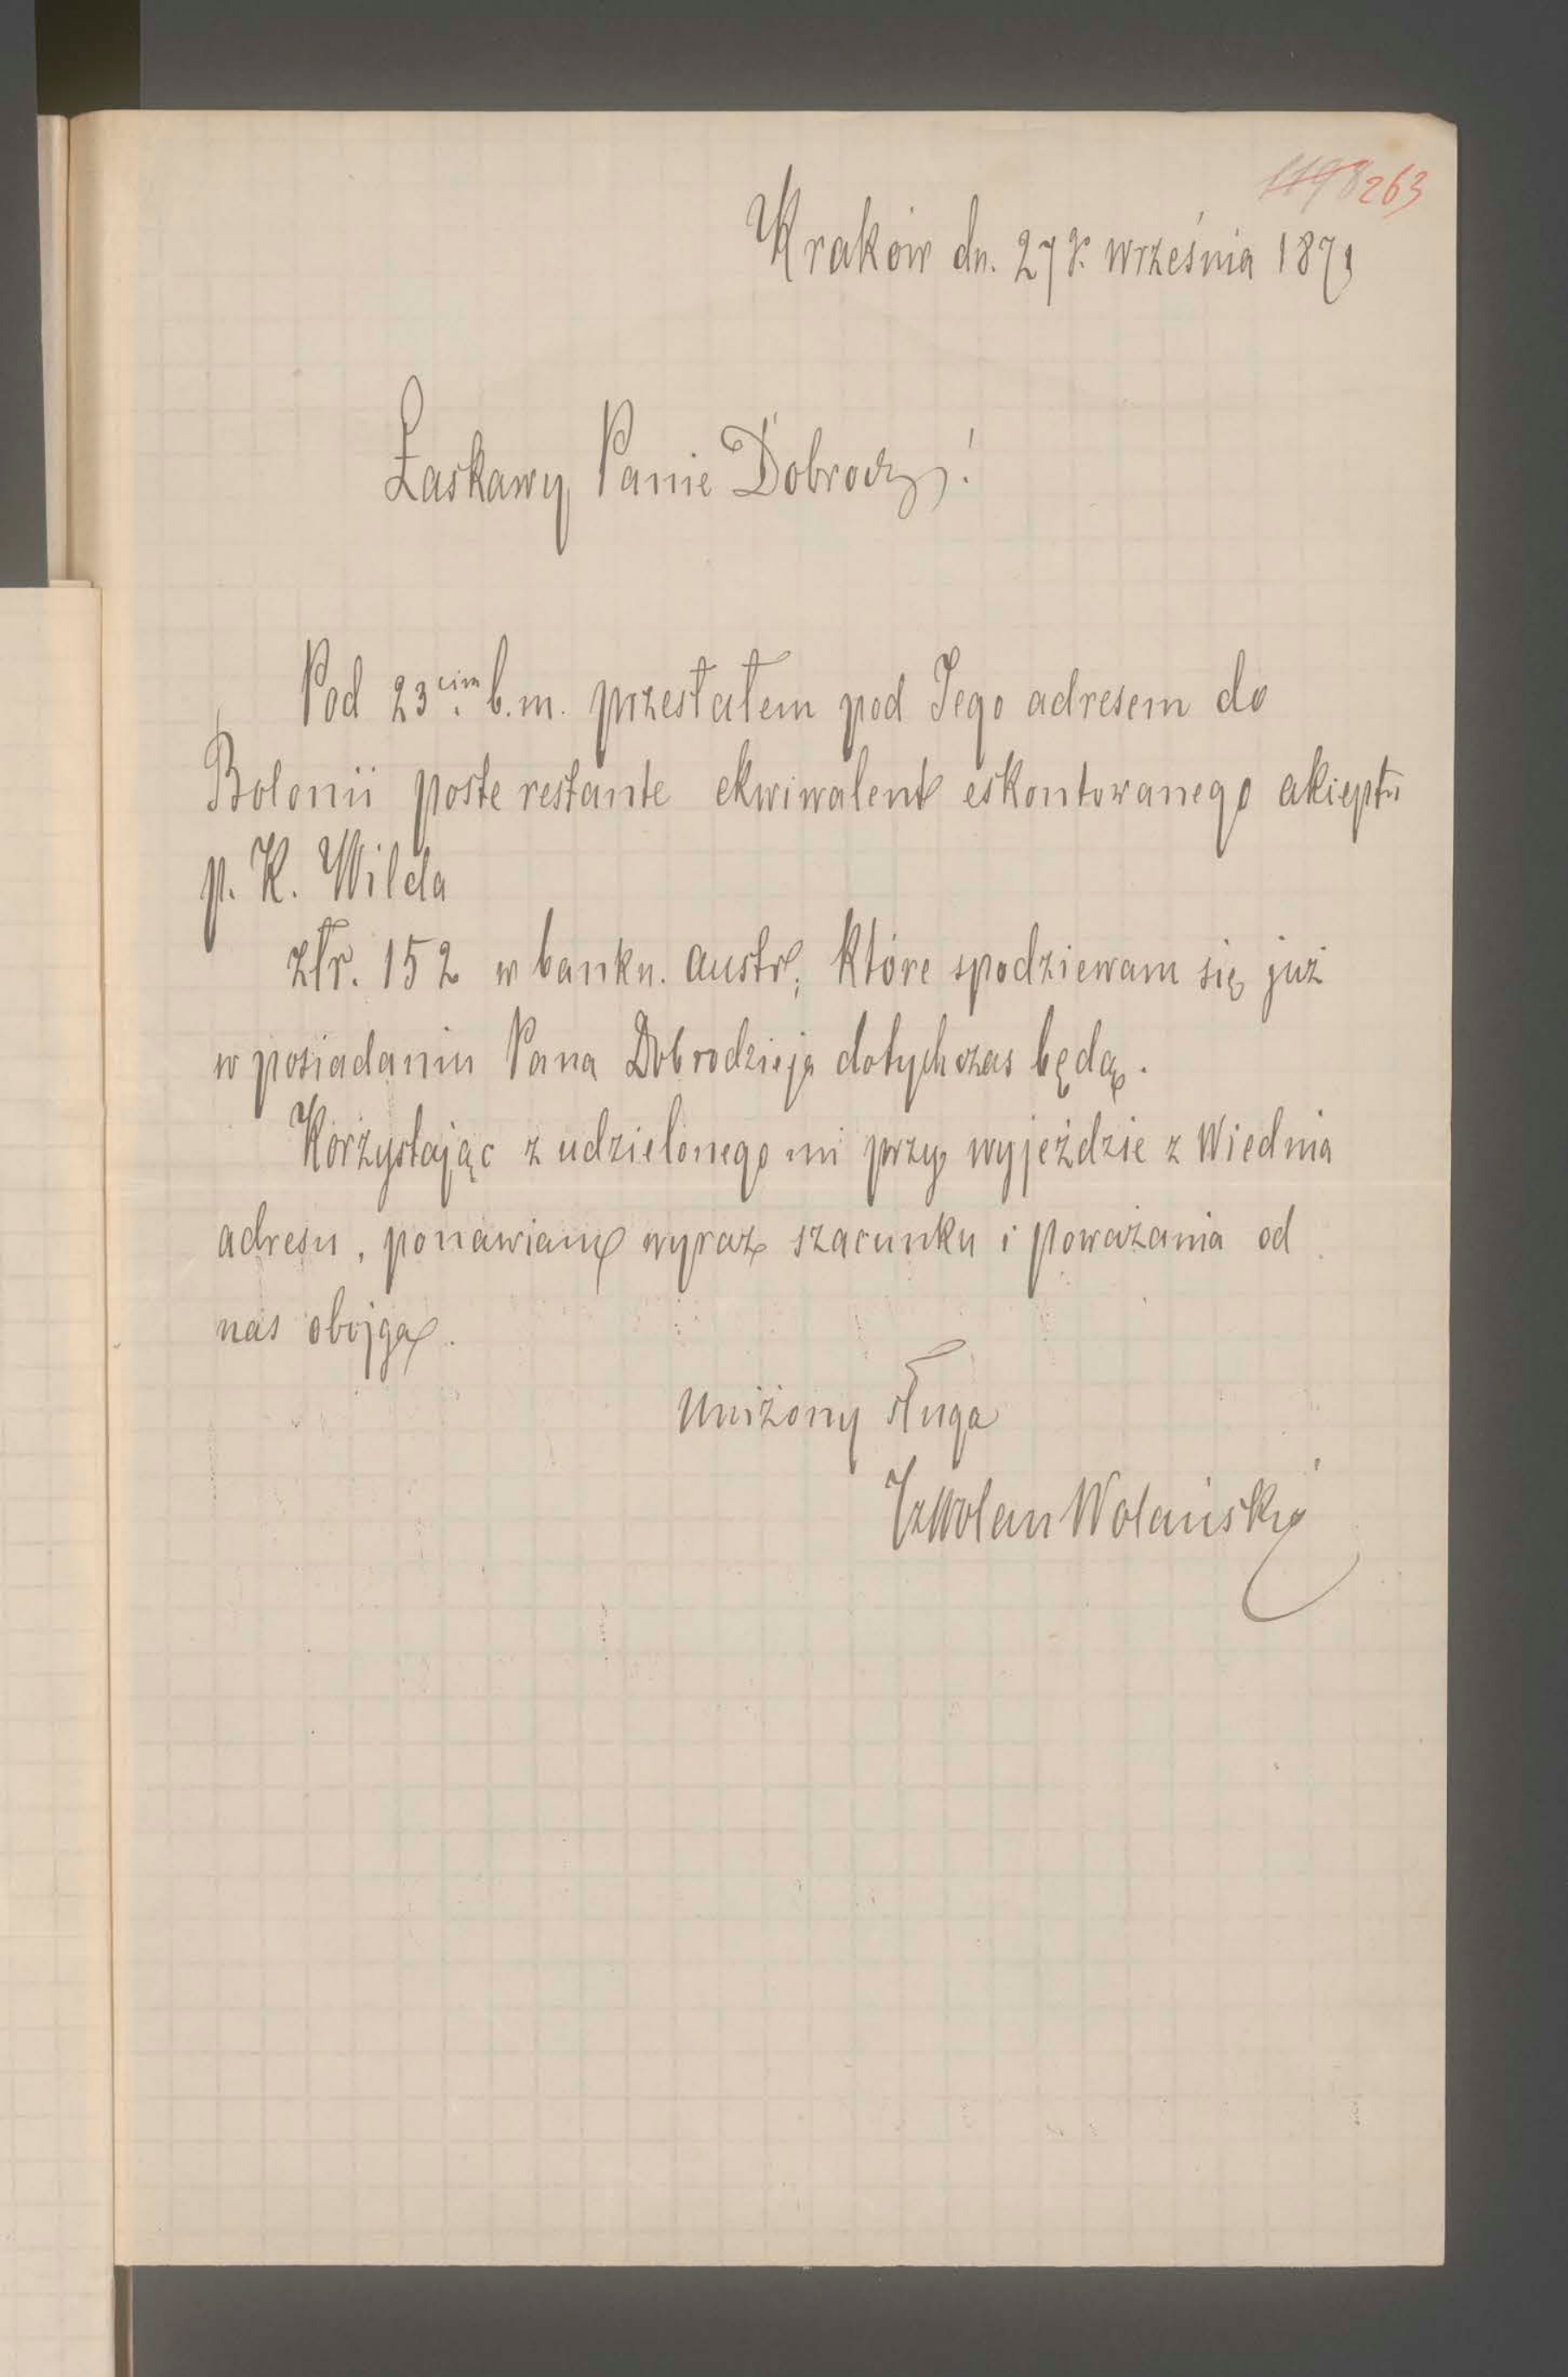 263
Kraków dn. 27 r. września 1871
Łaskawy Panie Dobrodz.!
Pod 23cim b.m. przesłałem pod Jego adresem do
Bolonii poste restante ekwiwalent eskontowanego akceptu
p. K. Wilda
złr. 152 w bankn. austr., które spodziewam się już
w posiadaniu Pana Dobrodzieja dotychczas będą.
Korzystając z udzielonego mi przy wyjeździe z Wiednia
adresu, ponawiam wyraz szacunku i poważania od
nas obojga.
Uniżony sługa
Wolański